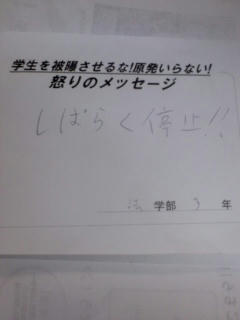 学生を被曝させるな!原発いらない!
怒りのメッセージ
しばらく停止!!
法 学部 3 年